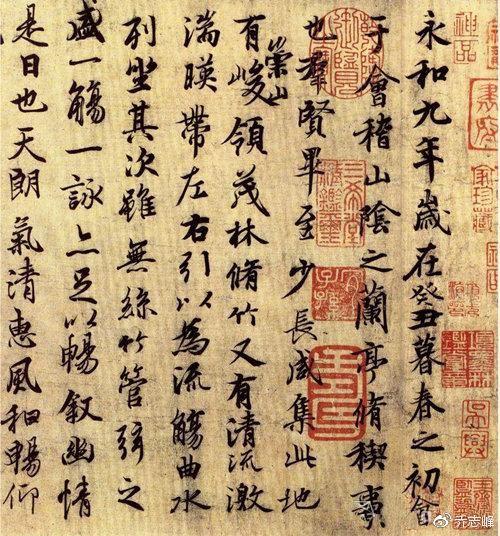 永和九年歲在癸丑暮春之初會
于會稽山陰之蘭亭脩稧事
也羣賢畢至少長咸集此地
有崇山峻領茂林脩竹又有清流激
湍暎帶左右引以為流觴曲水
列坐其次雖無絲竹管弦之
盛一觴一詠亦足以暢敘幽情
是日也天朗氣清惠風和暢仰
神品
三希堂
@乔志峰